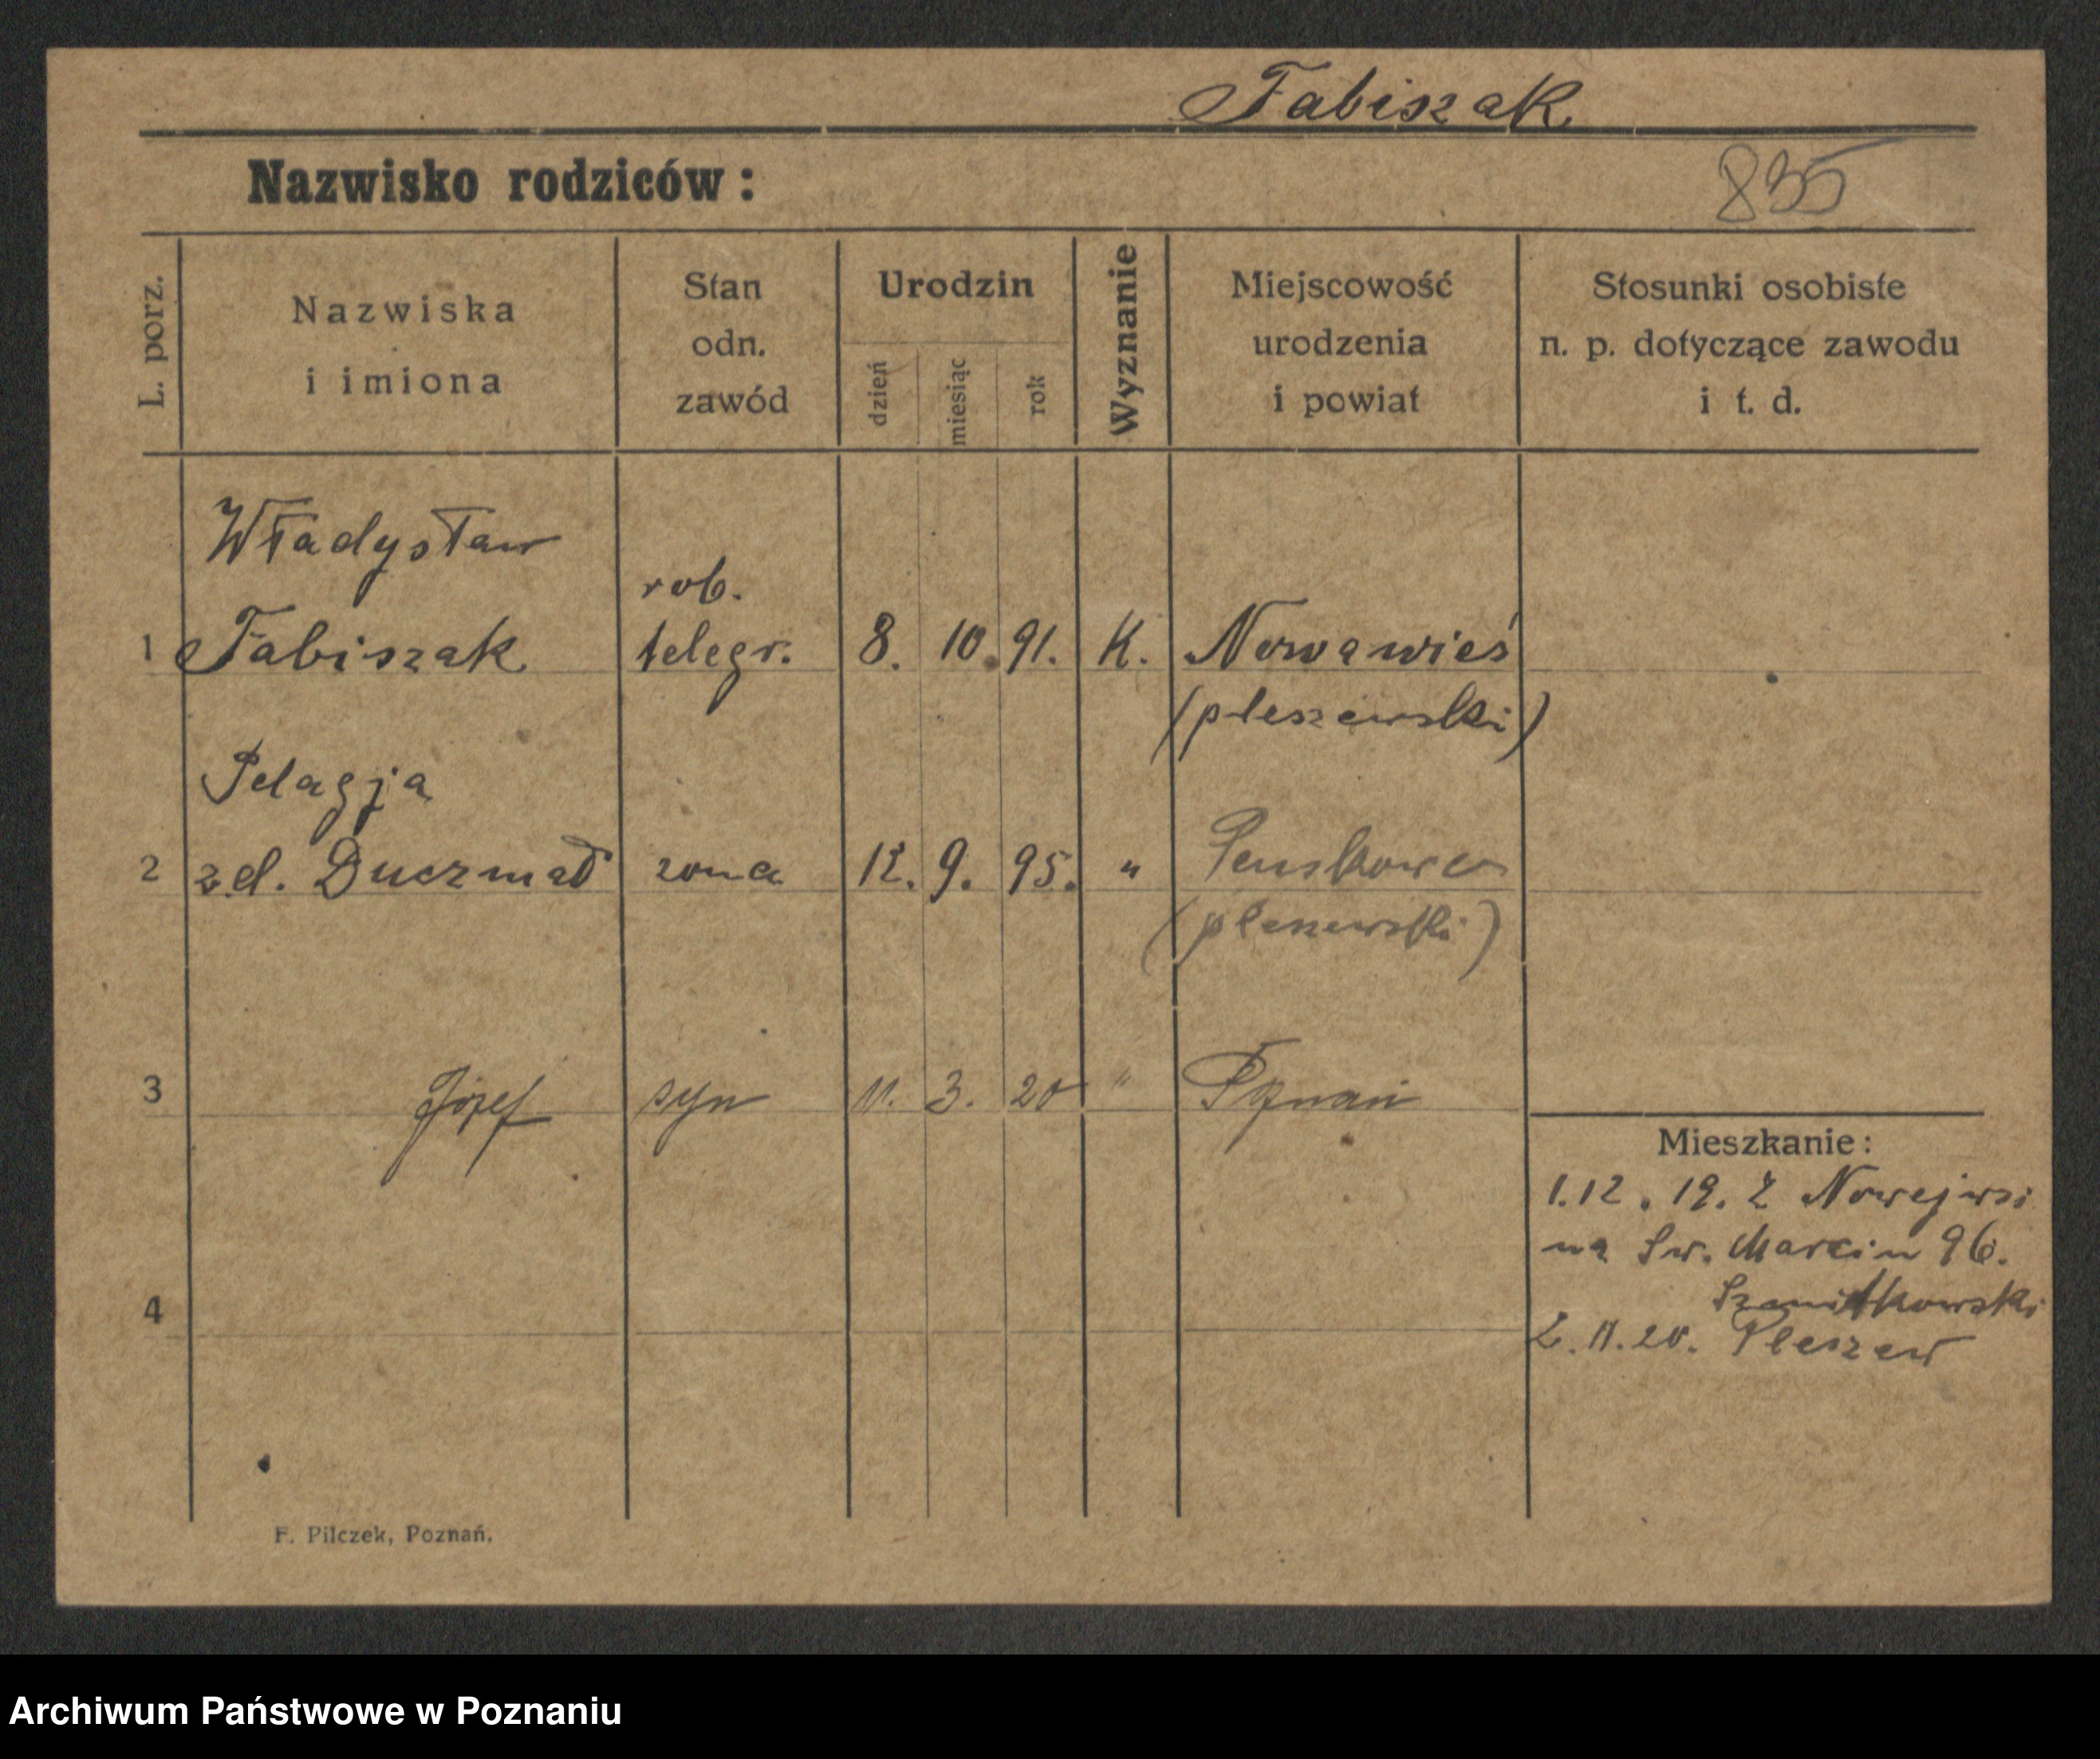 Fabiszak
Nazwisko rodziców:
835
L. porz.
Nazwiska
i imiona
Stan
odn.
zawód
Urodzin
dzień
miesiąc
rok
Wyznanie
Miejscowość
urodzenia
i powiat
Stosunki osobiste
n. p. dotyczące zawodu
i t. d.
Władysław
rob.
1 Fabiszak telegr. 8. 10. 91. K. Nowawieś
(pleszewski)
Pelagja
2 z.d. Duczmał zona 12. 9. 95. "
(pleszewski)
3 Józef syn 11. 3. 20 " Poznań
Mieszkanie:
1.12.19. Z Nowejwsi
na Sw. Marcin 96.
4
2.11.20. Pleszew
F. Pilczek, Poznań.
Archiwum Państwowe w Poznaniu